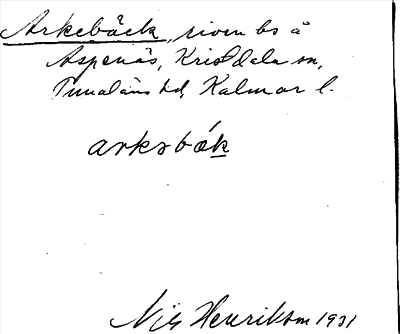 Arkebäck, riven bs å
Aspenäs, Kristdala sn,
Tunaläns hd, Kalmar l.
arkəbæk
Nils Henrikson 1931